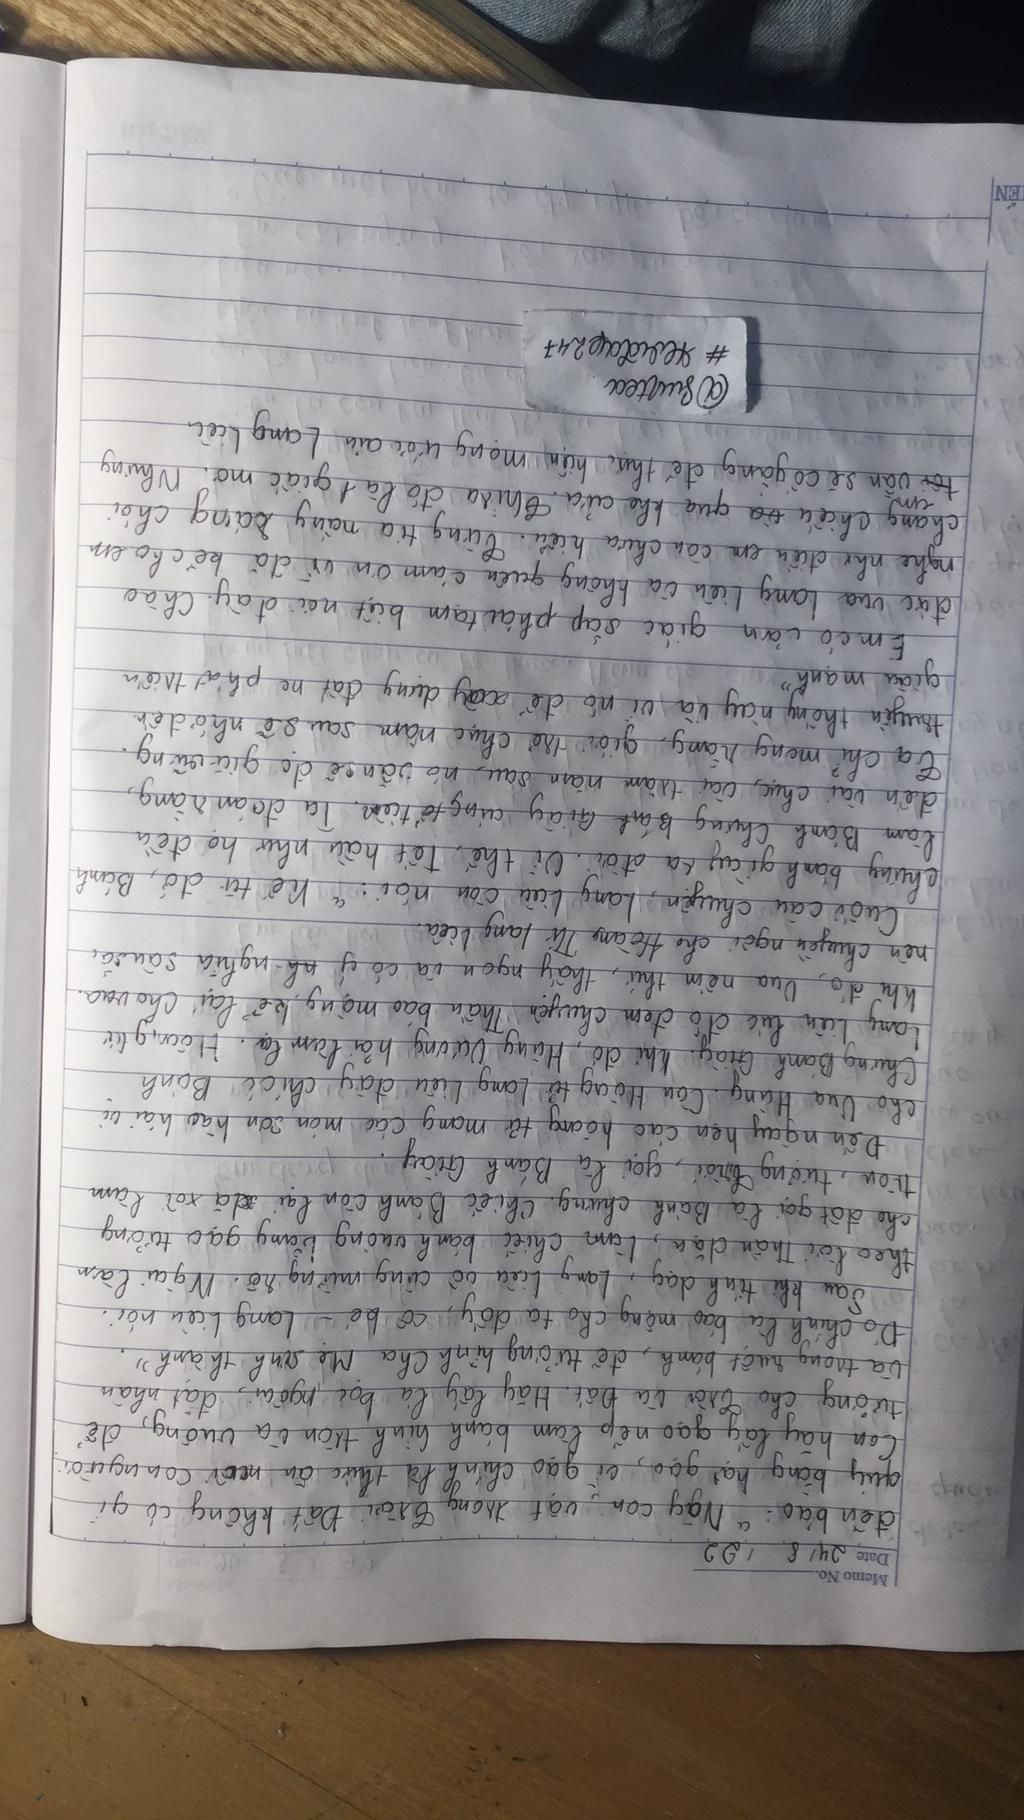 Memo No.
Date 24 / 8 / 22
đến bảo: "Này con, vật trong Trời Đất không có gì
quý bằng hạt gạo, vì gạo chính là thức ăn nuôi con người.
Con hãy lấy gạo nếp làm bánh hình tròn và vuông, để
tượng cho Trời và Đất. Hãy lấy lá bọc ngoài, đặt nhân
và trong ruột bánh, để tượng hình Cha Mẹ sinh thành".
Đó chính là báo mộng cho ta đấy, cô bé – Lang Liêu nói.
Sau khi tỉnh dậy, Lang Liêu vô cùng mừng rỡ. Ngài làm
theo lời Thần dặn, làm chiếc bánh vuông bằng gạo tượng
cho đất gọi là Bánh chưng. Chiếc Bánh còn lại giã xôi làm
tròn, tượng Trời, gọi là Bánh Giầy.
Đến ngày hẹn các hoàng tử mang các món sơn hào hải vị
cho Vua Hùng. Còn Hoàng tử Lang Liêu đây chỉ có Bánh
Chưng Bánh Giầy. Khi đó, Hùng Vương hỏi làm lạ. Hoàng tử
Lang Liêu lúc đó đem chuyện Thần báo mộng, kể lại cho vua.
Khi đó, Vua nếm thử, thấy ngon và có ý nghĩa sâu sắc
nên chuyền ngôi cho Hoàng Tử lang Liêu.
Cuối câu chuyện, Lang Liêu còn nói: "Kể từ đó, Bánh
chưng bánh giầy ra đời. Vì thế, Tết hầu như họ đều
làm Bánh Chưng Bánh Giầy cúng tổ tiên. Ta đoán rằng,
đến vài chục, vài trăm năm sau, nó vẫn sẽ đc giữ vững.
Ta chỉ mong rằng, giới trẻ chục năm sau sẽ nhớ đến
truyền thống này và vì nó để xây dựng đất nc phát triển
giàu mạnh".
Em có cảm giác sắp phải tạm biệt nơi đây. Chào
đức vua Lang Liêu và không quên cảm ơn vì đã kể cho em
nghe như điều em còn chưa hiểu. Từng tia nắng sáng chói
chang chiếu qua khe cửa. Thì ra đó là 1 giấc mơ. Nhưng
em vẫn sẽ cố gắng để thực hiện mong ước của Lang Liêu
@Swttea
247
IÊN